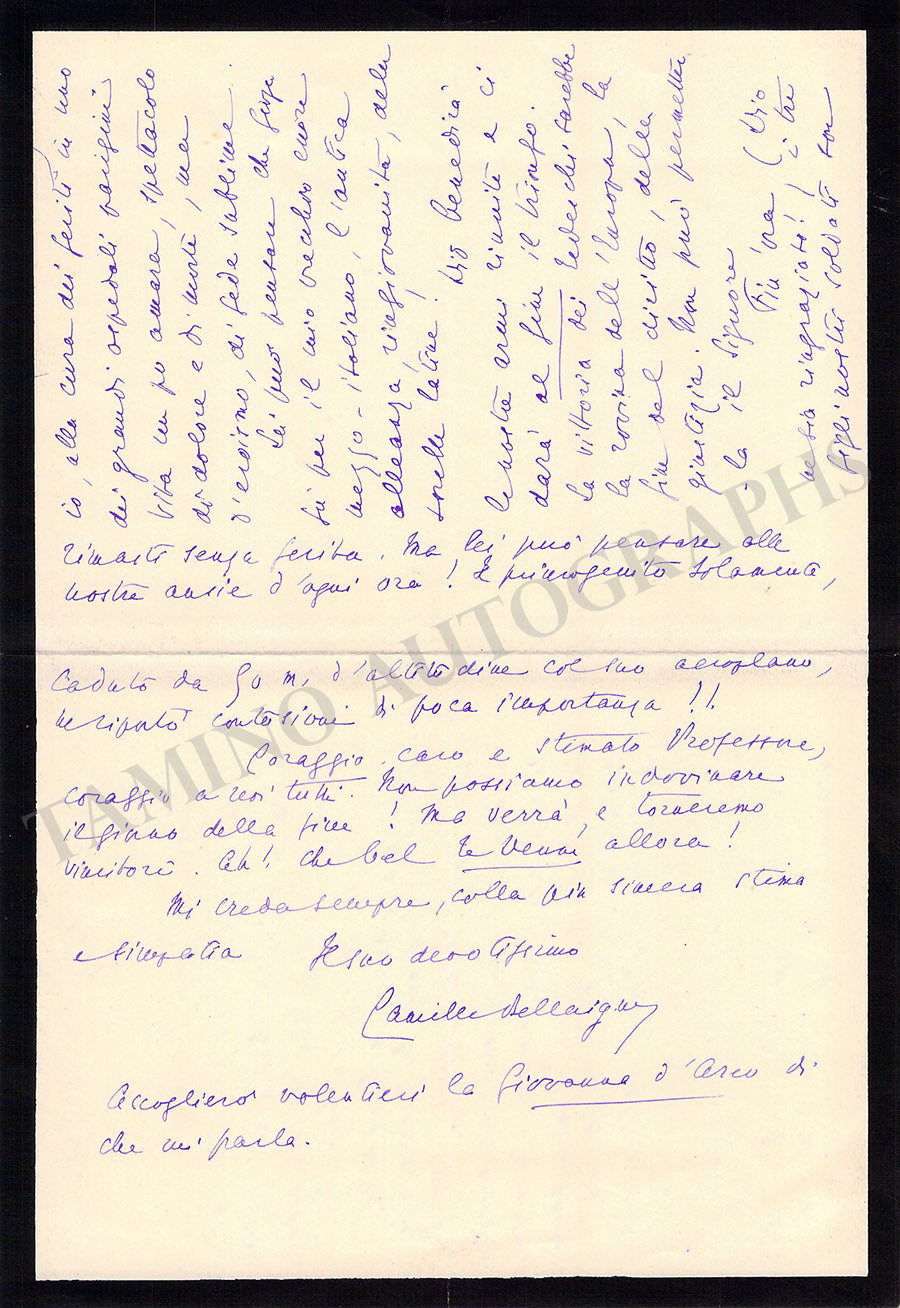 io, alla cura dei feriti in uno
dei grandi ospedali parigini
Vita un po amara, spettacolo
di dolore e di morte, ma
d'eroismo, di fede sublime.
Lei può pensare che gioja
fù per il mio vecchio cuore
mezzo-italiano, l'antica
alleanza ringiovanita, delle
sorelle latine! Dio benedirà
le nostre armi riunite e ci
darà al fine il trionfo.
La vittoria dei Tedeschi sarebbe
la rovina dell'Europa, la
fine del diritto, della
giustizia. Non può permetter
-la il Signore
Fin'ora (Dio
ne sia ringraziato!) i tre
figli nostri soldati son
rimasti senza ferita. Ma lei può pensare alle
nostre ansie d'ogni ora! Il primogenito solamente,
caduto da 50 m, d'altitudine col suo aeroplano,
ne riportò contusioni di poca importanza!!
Coraggio, caro e stimato Professore,
coraggio a voi tutti. Non possiamo indovinare
il giorno della fine! Ma verrà, e torneremo
vincitori. Ah! che bel Te Deum allora!
Mi creda sempre, colla più sincera stima
e simpatia Il suo devotissimo
Camille Bellaigue
Accoglierò volentieri la Giovanna d'Arco di
che mi parla.
TAMINO AUTOGRAPHS